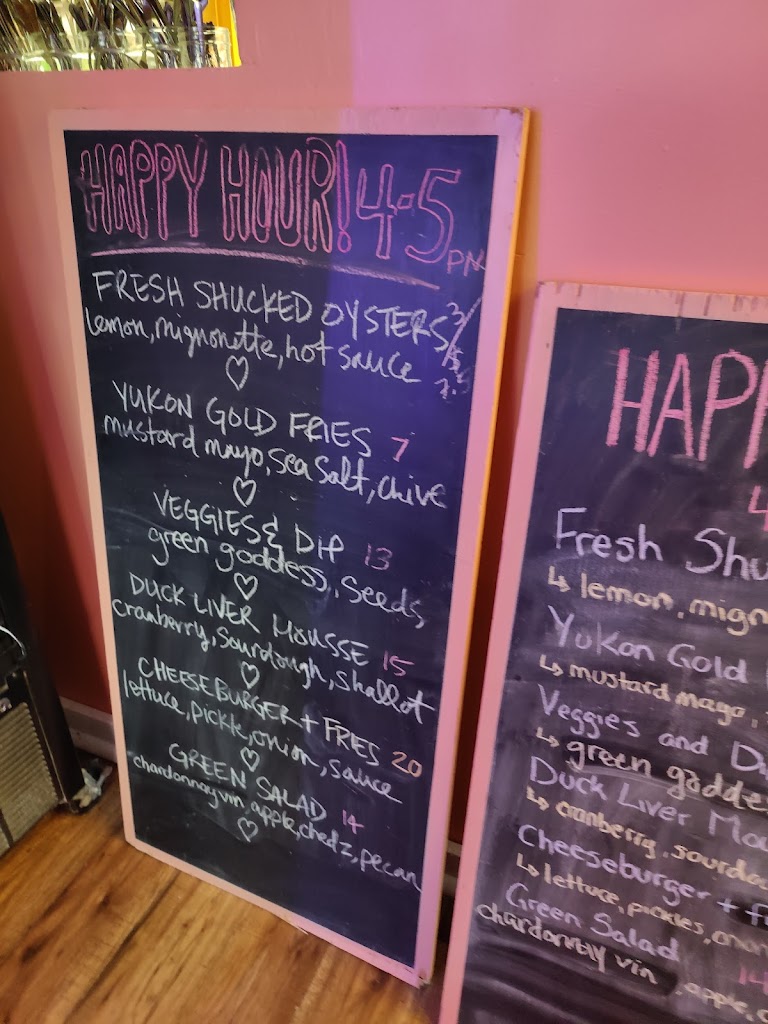 HAPPY HOUR! 4-5 PM
FRESH SHUCKED OYSTERS 3/
lemon, mignonette, hot sauce
YUKON GOLD FRIES 7
mustard mayo, sea salt, chive
VEGGIES & DIP 13
green goddess, seeds
DUCK LIVER MOUSSE 15
cranberry, sourdough, shallot
CHEESEBURGER + FRIES 20
lettuce, pickle, onion, sauce
GREEN SALAD 14
chardonnay vin, apple, chedz, pecan
HAPP
4
Fresh Shu
↳ lemon, mign
Yukon Gold
↳ mustard mayo,
Veggies and D
↳ green godde
Duck Liver Mou
↳ cranberry, sourdo
Cheeseburger + f
↳ lettuce, pickles, onion
Green Salad 14
chardonnay vin, apple, c